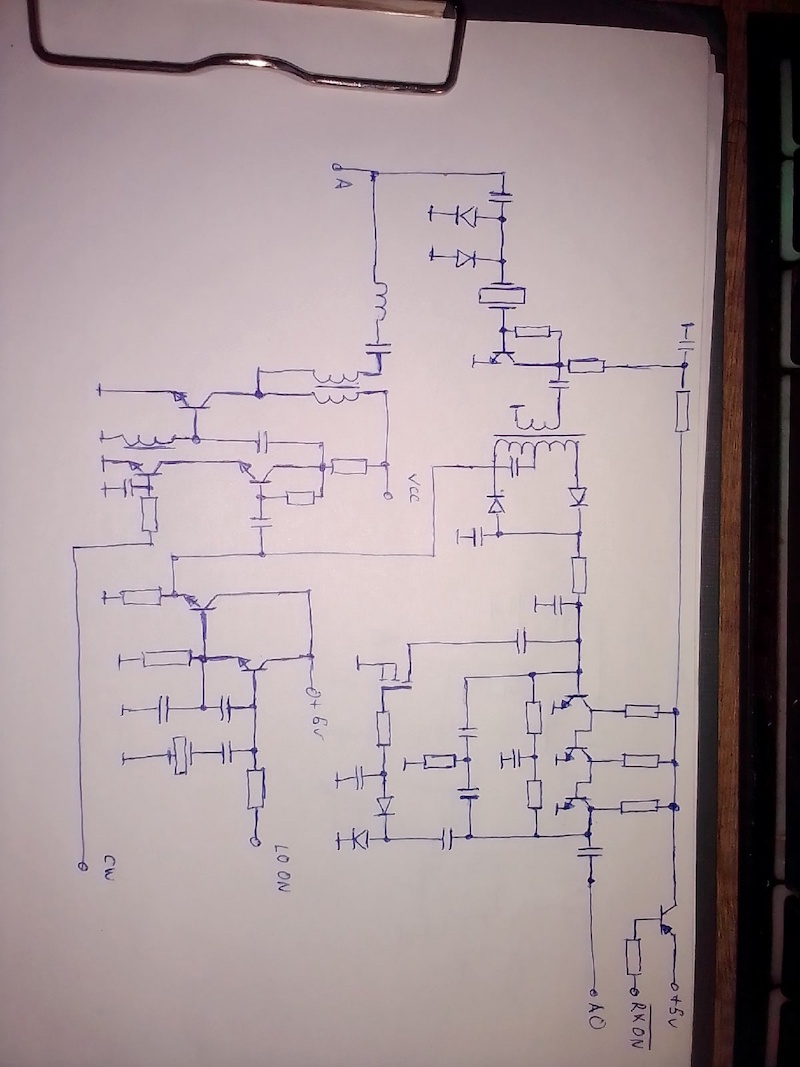 +6v
RX ON
AO
VCC
A
+6v
LO ON
CW